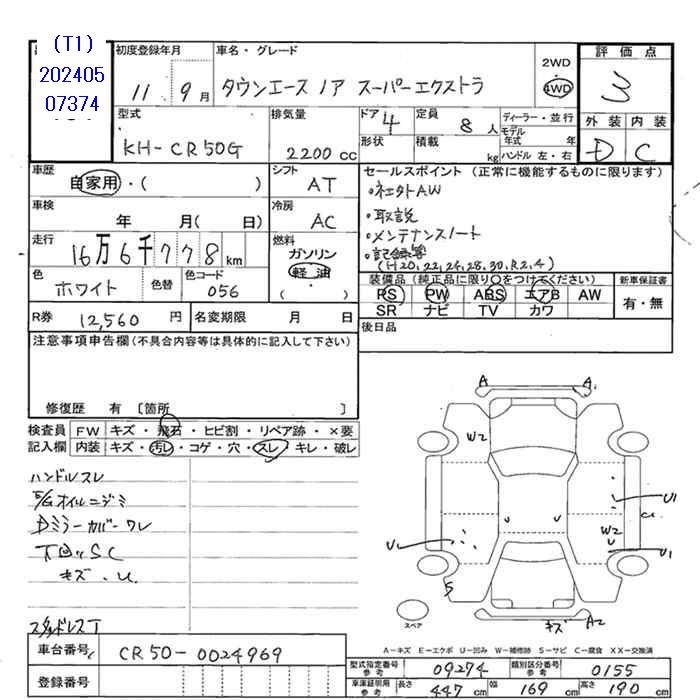 (T1)
202405
07374
初度登録年月
11 9月
車名・グレード
タウンエース ノア スーパーエクストラ
2WD
・
4WD
評価点
3
型式
KH-CR50G
排気量
2200 cc
ドア 4
形状
定員 8 人
積載 kg
ディーラー・並行
モデル
年式 年
ハンドル 左・右
外装 内装
D C
車歴
自家用・( )
シフト
AT
車検
年 月( 日)
冷房
AC
走行
16万6千778km
燃料
ガソリン
・
軽油
( )
色
ホワイト
色替
色コード
056
R券 12,560 円
名変期限 月 日
セールスポイント (正常に機能するものに限ります)
・社外AW
・取説
・メンテナンスノート
・記録簿
(H20,22,24,28,30,R2,4)
装備品 (純正品に限り○をつけてください)
新車保証書
PS PW ABS エアB AW
有・無
SR ナビ TV カワ
後日品
注意事項申告欄(不具合内容等は具体的に記入して下さい)
修復歴 有 〔箇所 〕
検査員 FW キズ・飛石・ヒビ割・リペア跡・×要
記入欄 内装 キズ・汚レ・コゲ・穴・スレ・キレ・破レ
ハンドルスレ
E/Gオイルニジミ
Dミラーカバーワレ
下回りSC
キズ・U
スタッドレスT
A A
W2
U1
W2
U1
U
S
キズ A2
スペア
A-キズ E-エクボ U-凹み W-補修跡 S-サビ C-腐食 XX-交換済
車台番号 CR50-0024969
登録番号
型式指定番号 参考 09274 類別区分番号 参考 0155
車庫証明用 参考 長さ 447 cm 幅 169 cm 高さ 190 cm